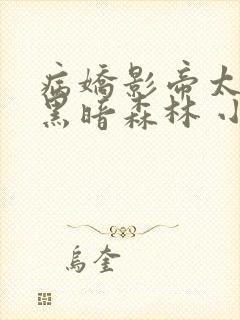 病嬌影帝太
黑暗森林 小
烏奎